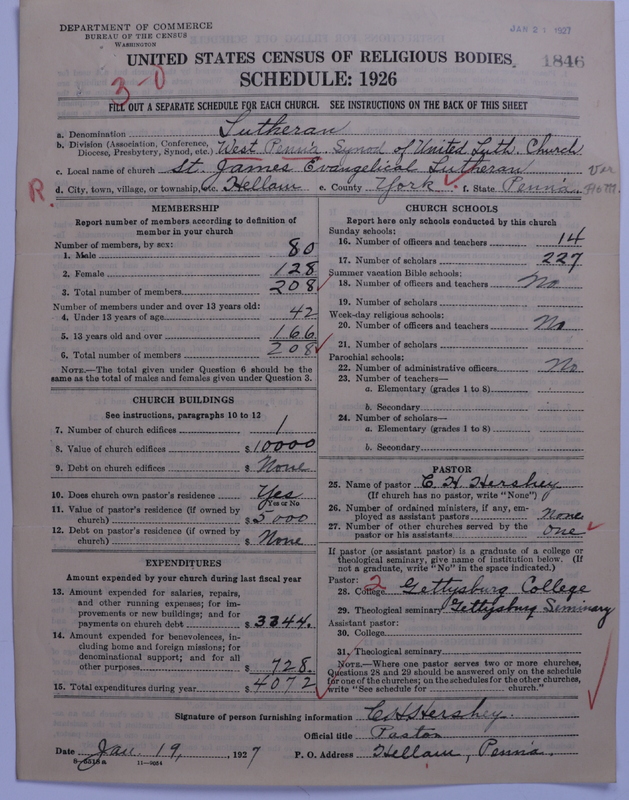 DEPARTMENT OF COMMERCE
BUREAU OF THE CENSUS
WASHINGTON
JAN 21 1927
UNITED STATES CENSUS OF RELIGIOUS BODIES
1846
SCHEDULE: 1926
3-0
FILL OUT A SEPARATE SCHEDULE FOR EACH CHURCH. SEE INSTRUCTIONS ON THE BACK OF THIS SHEET
a. Denomination Lutheran
b. Division (Association, Conference, Diocese, Presbytery, Synod, etc.) West Penn'a Synod of United Luth. Church
c. Local name of church St. James Evangelical Lutheran
R.
d. City, town, village, or township, etc. Hellam e. County York f. State Penn'a.
MEMBERSHIP
Report number of members according to definition of
member in your church
Number of members, by sex:
1. Male 80
2. Female 128
3. Total number of members 208
Number of members under and over 13 years old:
4. Under 13 years of age 42
5. 13 years old and over 166
6. Total number of members 208
NOTE.—The total given under Question 6 should be
same as the total of males and females given under Question 3.
CHURCH BUILDINGS
See instructions, paragraphs 10 to 12
7. Number of church edifices 1
8. Value of church edifices $10000
9. Debt on church edifices $ None
10. Does church own pastor's residence Yes
Yes or No
11. Value of pastor's residence (if owned by
church) $5000
12. Debt on pastor's residence (if owned by
church) $ None
EXPENDITURES
Amount expended by your church during last fiscal year
13. Amount expended for salaries, repairs,
and other running expenses; for im-
provements or new buildings; and for
payments on church debt $3344.
14. Amount expended for benevolences, in-
cluding home and foreign missions; for
denominational support; and for all
other purposes $728.
15. Total expenditures during year $4072
CHURCH SCHOOLS
Report here only schools conducted by this church
Sunday schools:
16. Number of officers and teachers 14
17. Number of scholars 227
Summer vacation Bible schools:
18. Number of officers and teachers No
19. Number of scholars
Week-day religious schools:
20. Number of officers and teachers No
21. Number of scholars
Parochial schools:
22. Number of administrative officers No
23. Number of teachers—
a. Elementary (grades 1 to 8)
b. Secondary
24. Number of scholars—
a. Elementary (grades 1 to 8)
b. Secondary
PASTOR
25. Name of pastor C. H. Hershey
(If church has no pastor, write "None")
26. Number of ordained ministers, if any, em-
ployed as assistant pastors None
27. Number of other churches served by the
pastor or his assistants One
If pastor (or assistant pastor) is a graduate of a college or
theological seminary, give name of institution below. (If
not a graduate, write "No" in the space indicated.)
Pastor: 2
28. College Gettysburg College
29. Theological seminary Gettysburg Seminary
Assistant pastor:
30. College
31. Theological seminary
NOTE.—Where one pastor serves two or more churches,
Questions 28 and 29 should be answered only on the schedule
for one of the churches; on the schedules for the other churches,
write "See schedule for church."
Signature of person furnishing information C H Hershey.
Official title Pastor
Date Jan. 19, 1927 P. O. Address Hellam, Penn'a.
8-5518a 11-9034